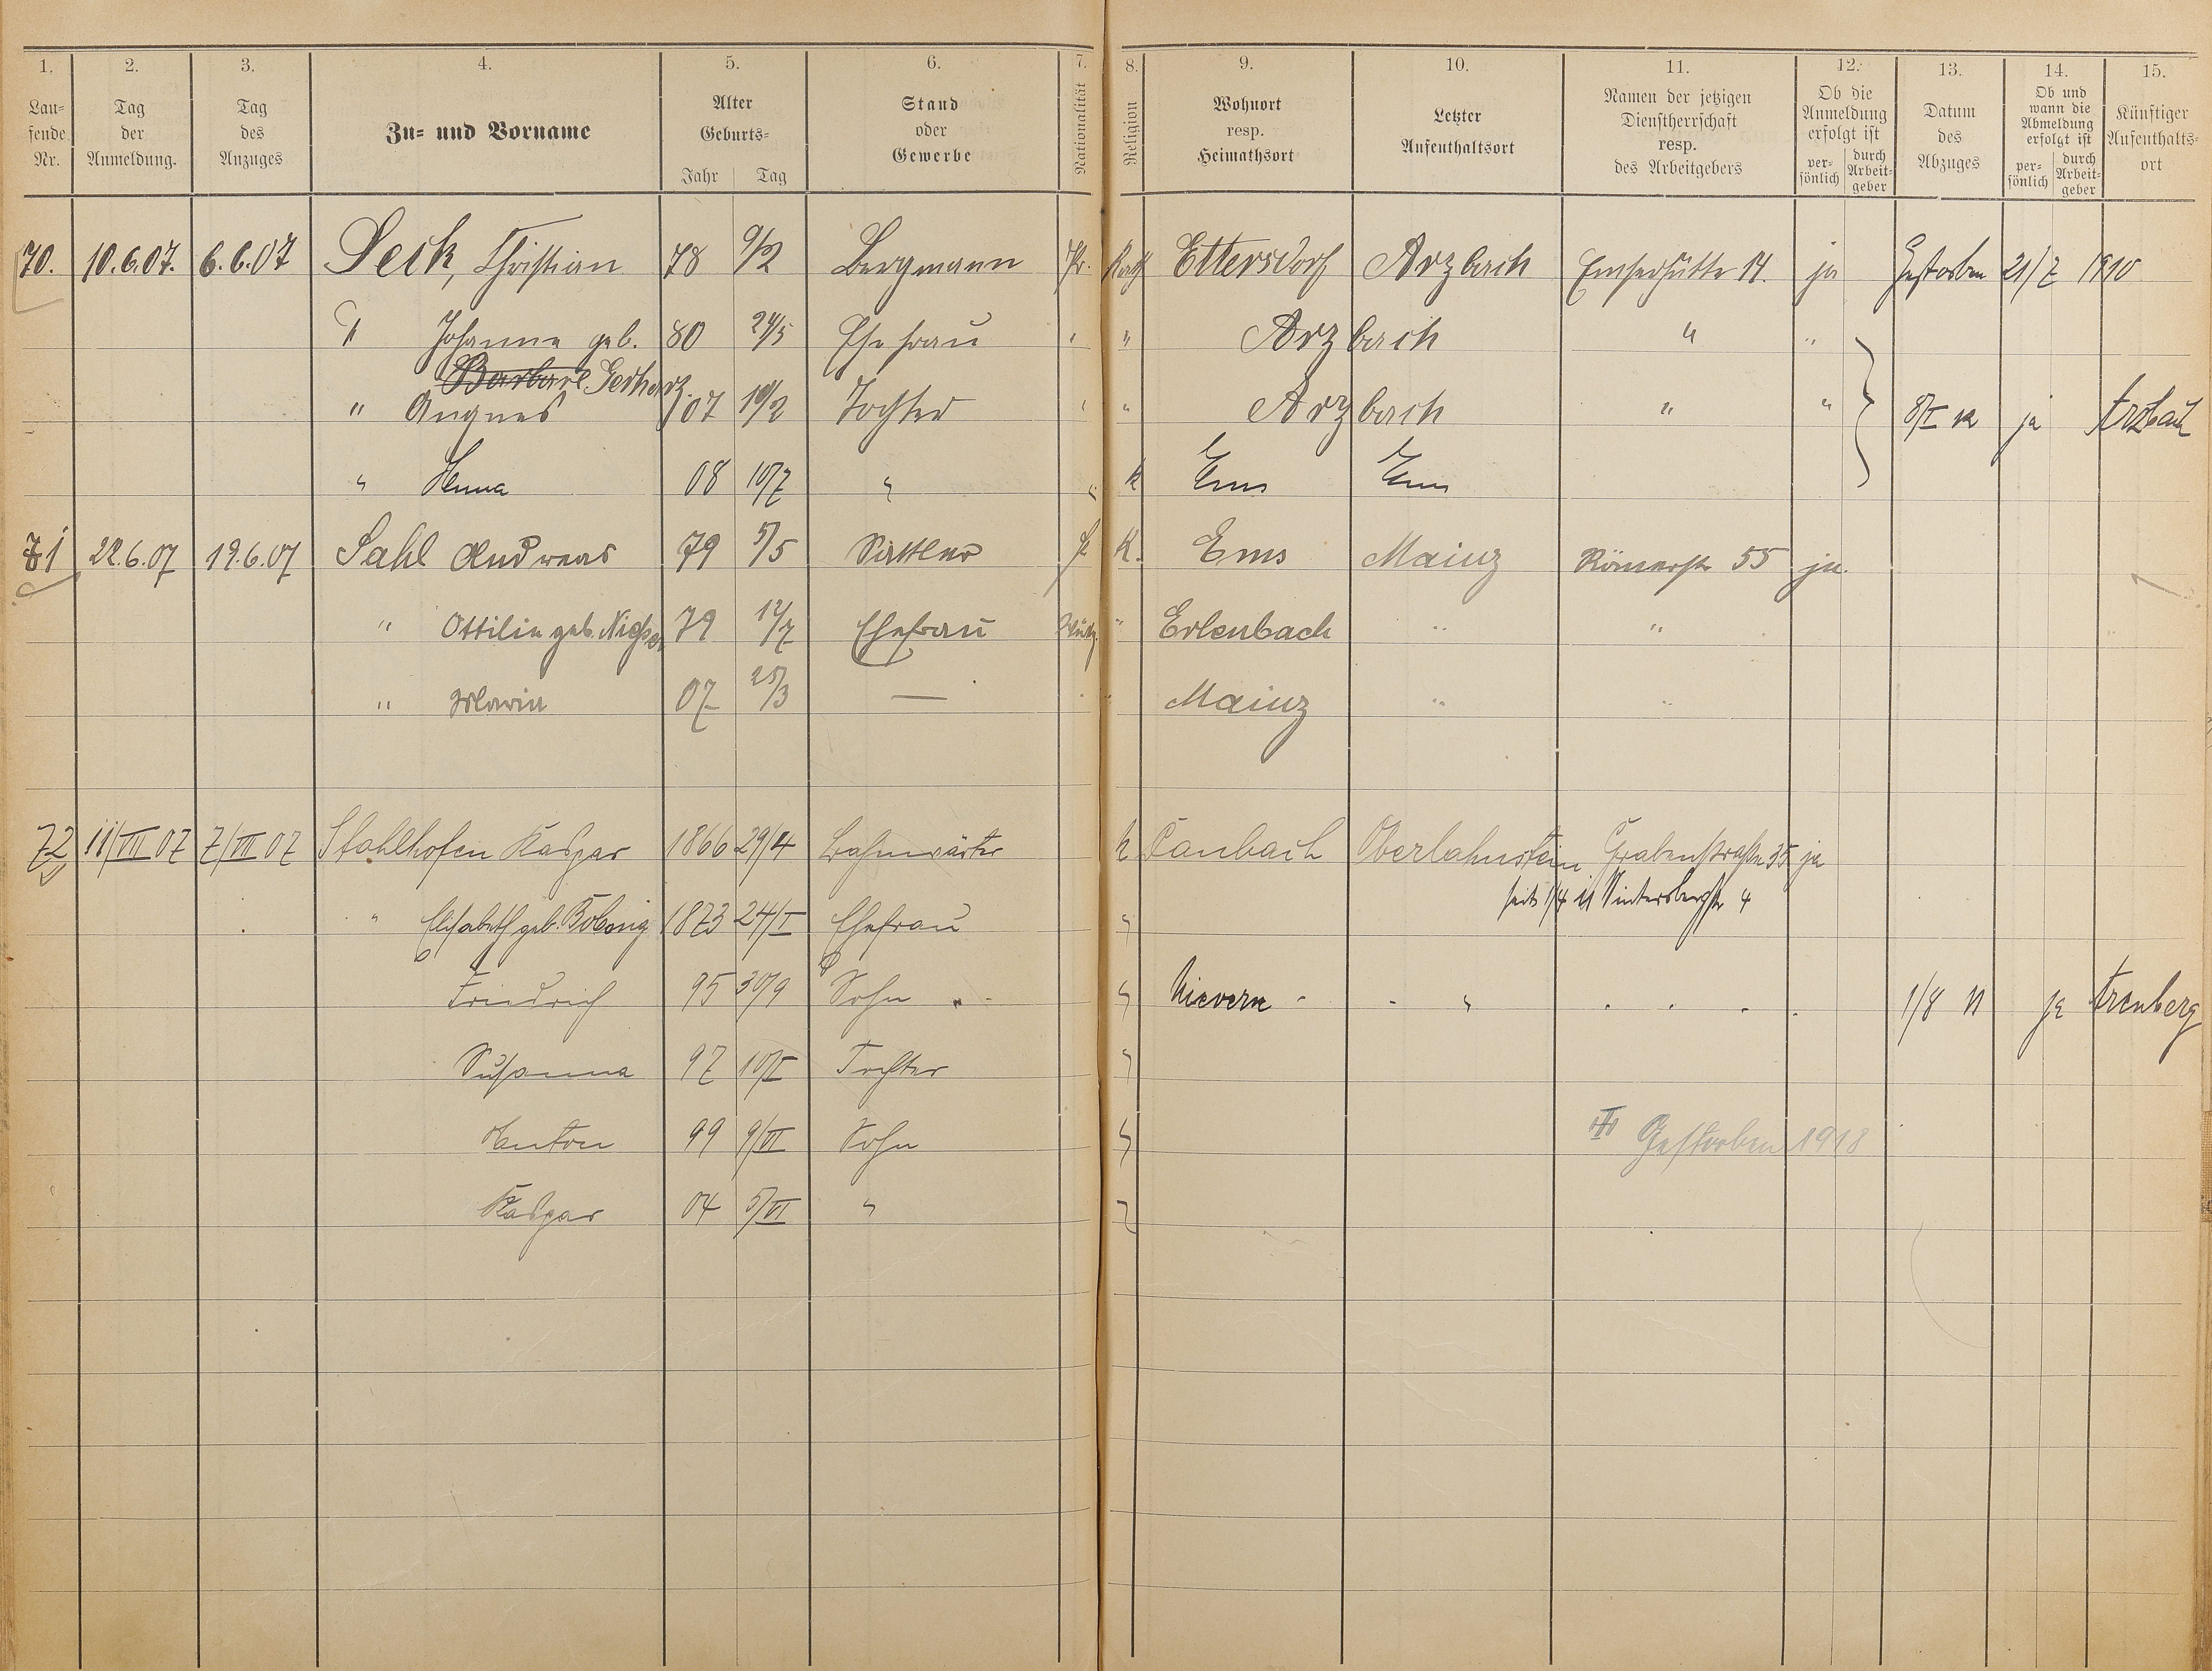 1. 2. 3. 4. 5. 6. 7. 8. 9. 10. 11. 12. 13. 14. 15.
Lau-
fende
Nr.
Tag
der
Anmeldung.
Tag
des
Anzuges
Zu- und Vorname
Alter
Geburts-
Jahr Tag
Stand
oder
Gewerbe
Nationalität
Religion
Wohnort
resp.
Heimathsort
Letzter
Aufenthaltsort
Namen der jetzigen
Dienstherrschaft
resp.
des Arbeitgebers
Ob die
Anmeldung
erfolgt ist
per-
sönlich
durch
Arbeit-
geber
Datum
des
Abzuges
Ob und
wann die
Abmeldung
erfolgt ist
per-
sönlich
durch
Arbeit-
geber
Künftiger
Aufenthalts-
ort
70. 10.6.07. 6.6.07 Seck, Christian 78 9/2 Bergmann Pr. Kath Ettersdorf Arzbach Emserhütte 14. ja Gestorben 21/7 1910
" Johanna geb. 80 24/5 Ehefrau " " Arzbach " "
Barbara Gerharz
" Angnes 07 10/2 Tochter " " Arzbach " " 8/I 12 ja Arzbach
" Anna 08 10/7 " " k Ems Ems
71 22.6.07 19.6.07 Sahl Andreas 79 5/5 Sattler Pr. K. Ems Mainz Römerstr 55 ja.
" Ottilie geb. 79 12/7 Ehefrau " Erlenbach " "
" Maria 07 25/3 — " Mainz " "
72 11/VII 07 7/VII 07 Stahlhofen Kaspar 1866 29/4 Bahnwärter k Canbach Oberlahnstein Grabenstraße 35 ja
seit 1/4 11 Wintersbergstr 4
" Elisabeth geb. 1873 24/I Ehefrau "
Friedrich 95 30/9 Sohn " Nievern " 1/8 11 ja Arenberg
Susanna 97 10/I Tochter "
Anton 99 9/VI Sohn " Gestorben 1918
Kaspar 04 5/VI " "